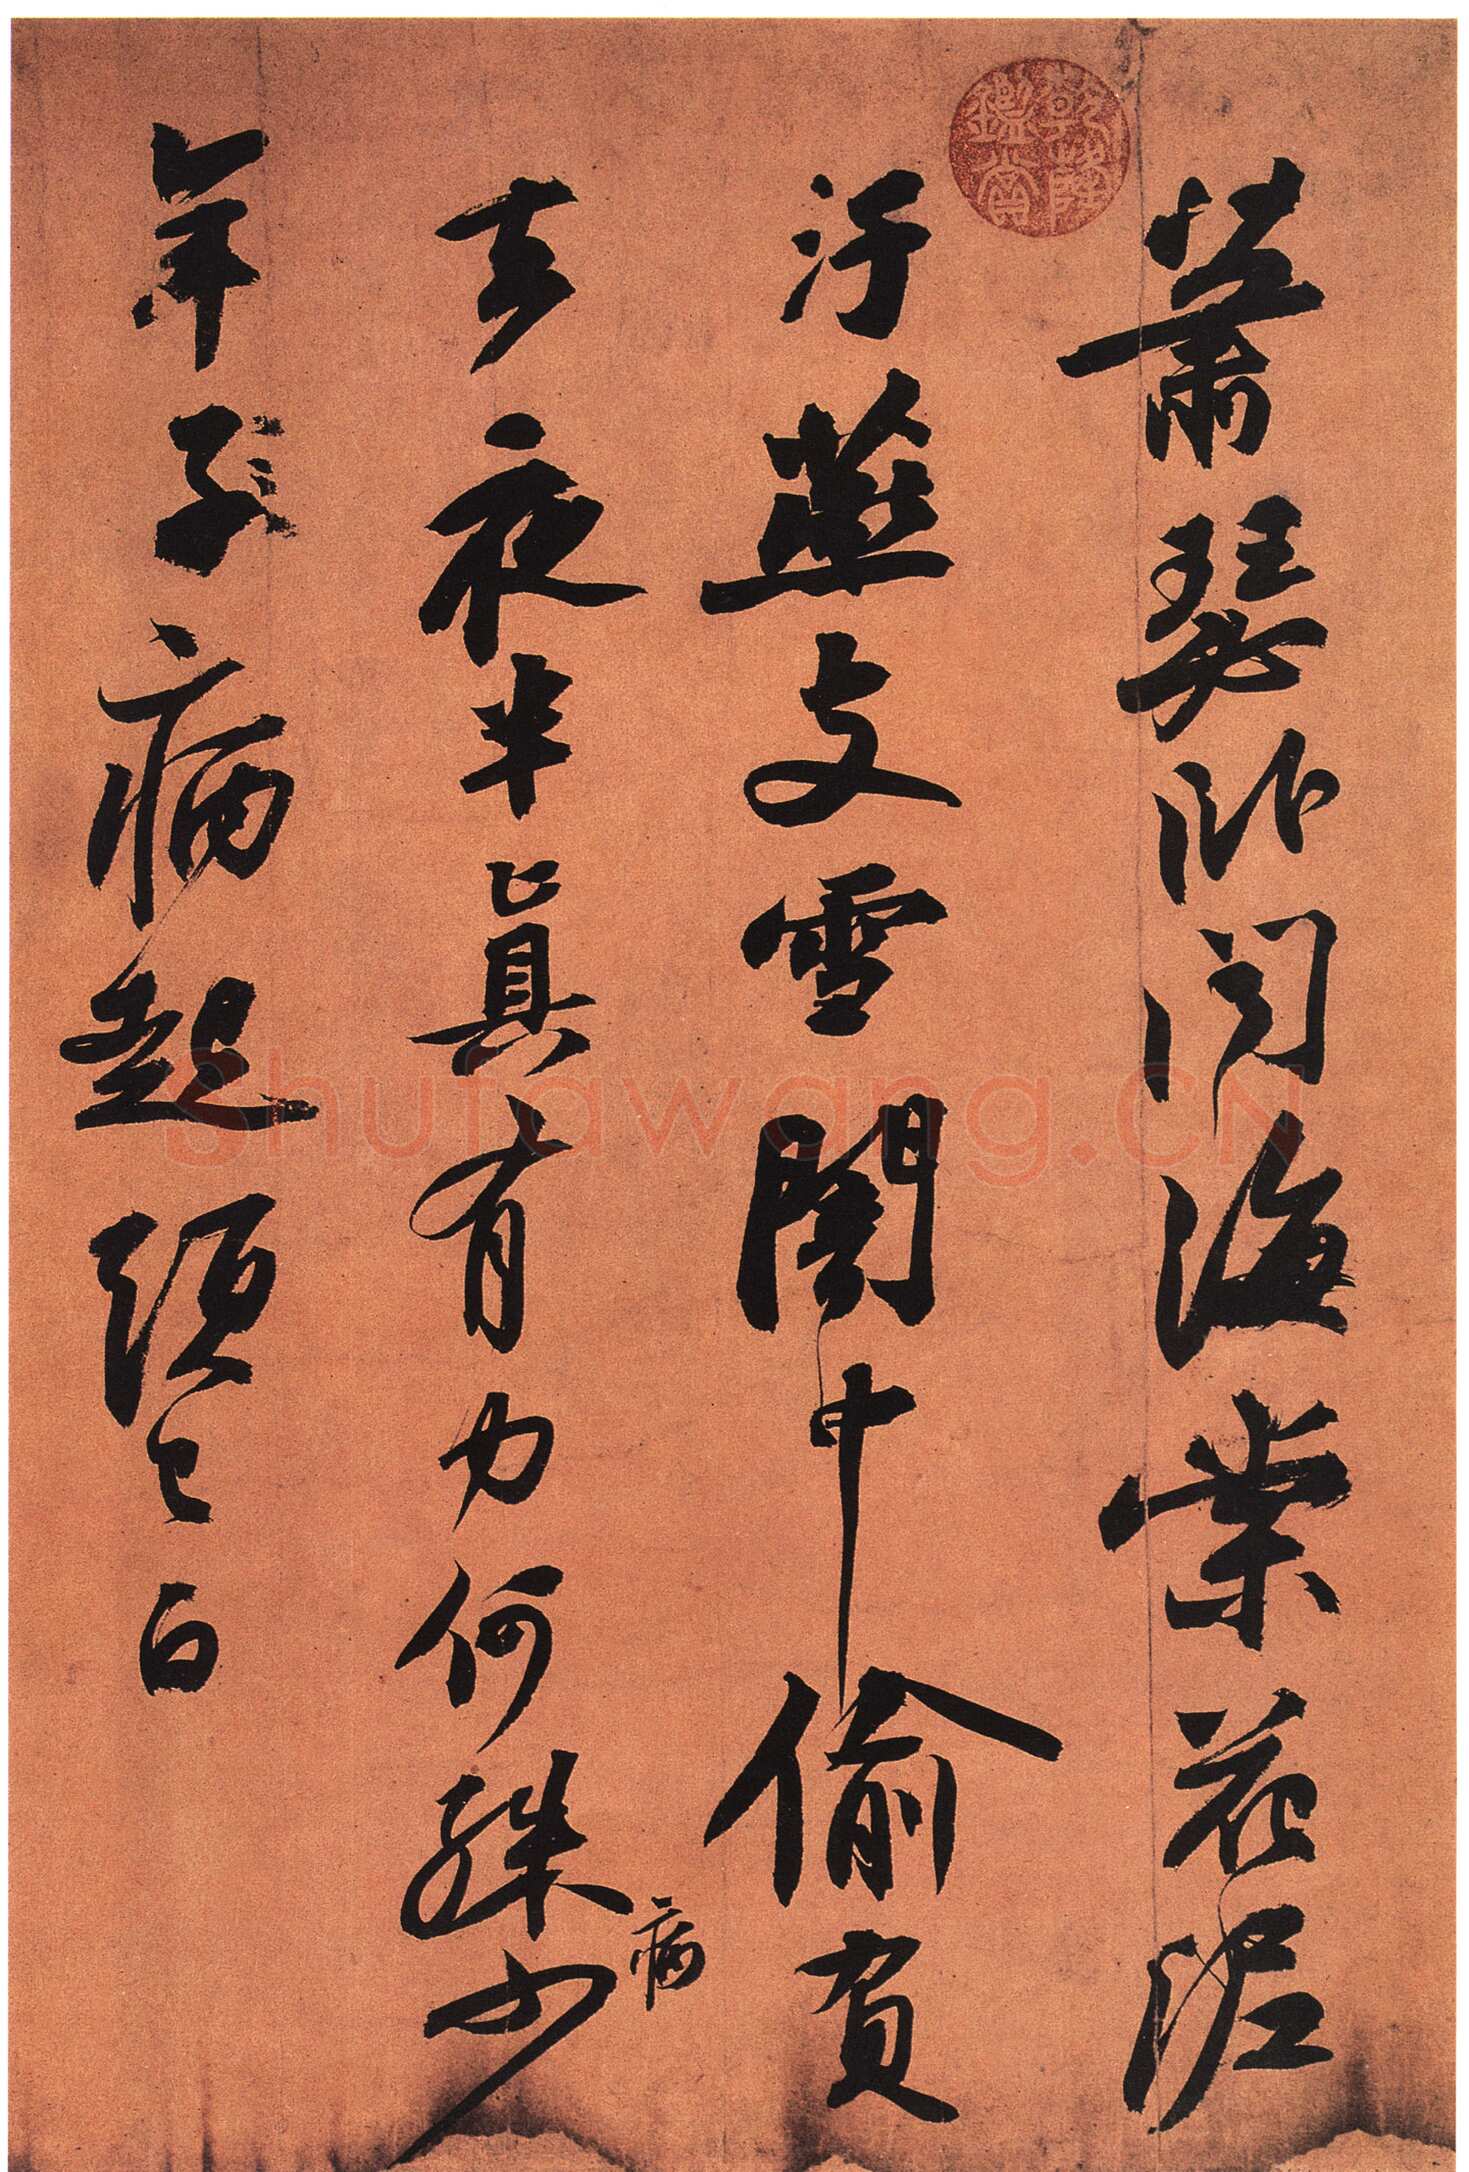 蕭瑟卧聞海棠花泥
汙燕支雪闇中偷負
去夜半真有力何殊少
病
年子病起頭已白
乾隆鑑賞
shufawang.CN